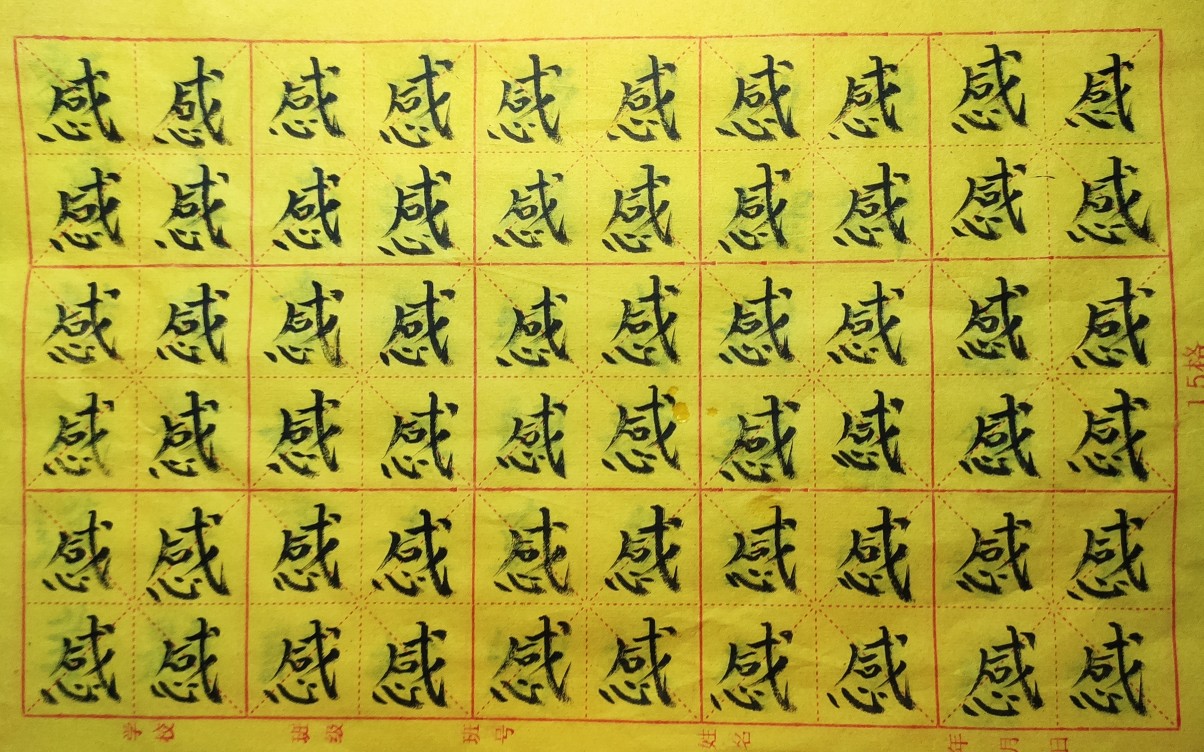 感感感感感感感感感感
感感感感感感感感感感
感感感感感感感感感感
感感感感感感感感感感
感感感感感感感感感感
感感感感感感感感感感
学校 班级 班号 姓名 年 月 日
15格